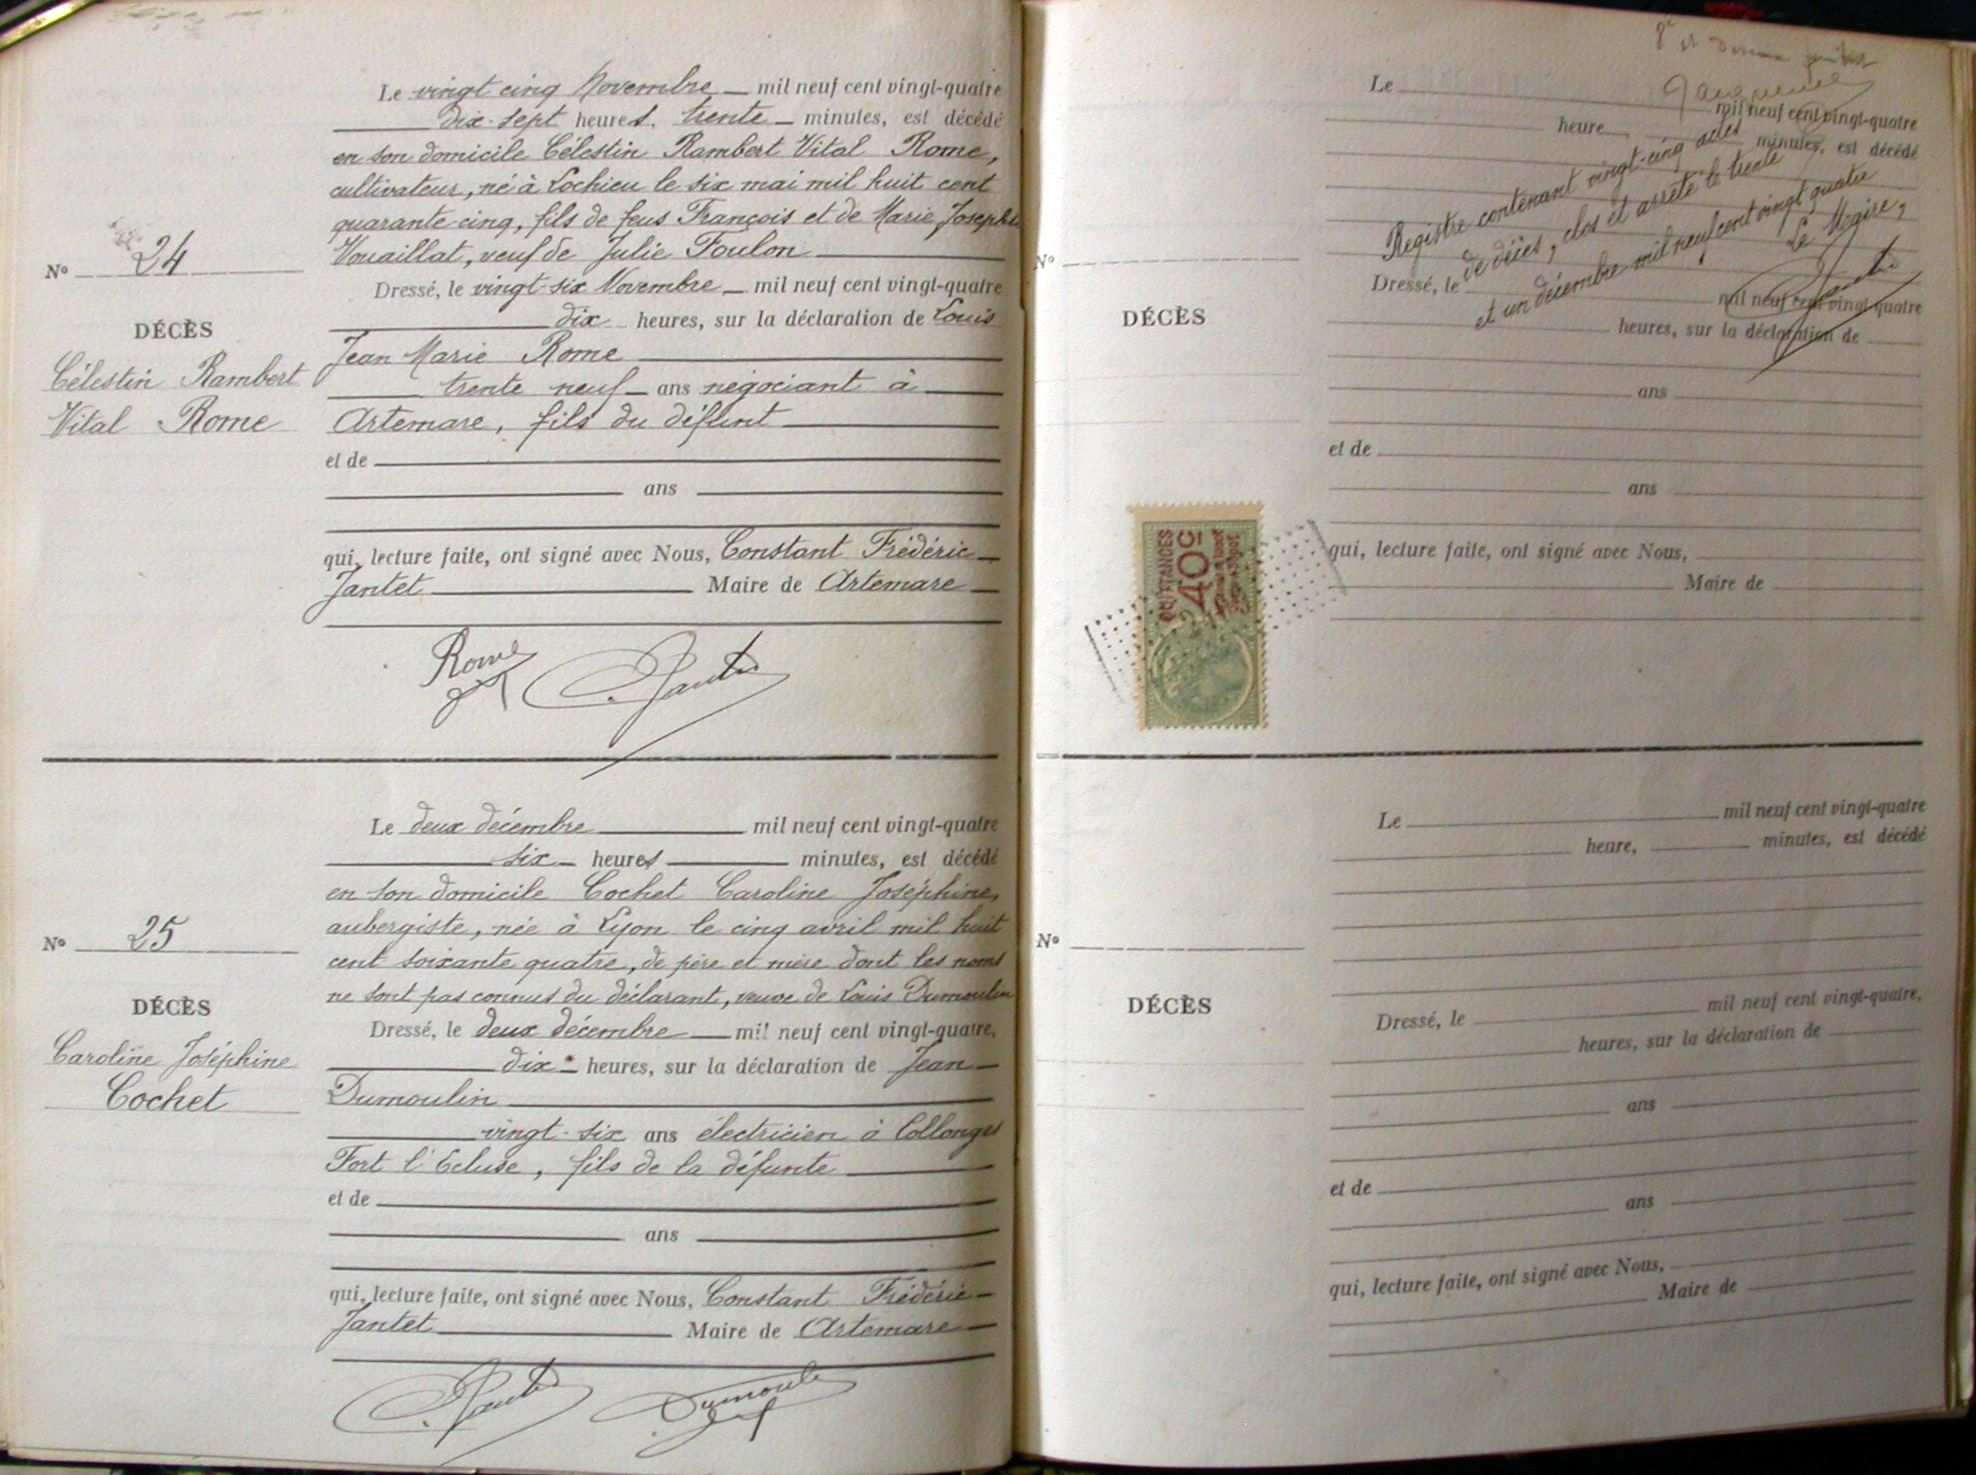 Le vingt cinq Novembre mil neuf cent vingt-quatre
dix-sept heures, trente minutes, est décédé
en son domicile Célestin Rambert Vital Rome,
cultivateur, né à Lochieu le six mai mil huit cent
quarante cinq, fils de feus François et de Marie Josephte
Vouaillat, veuf de Julie Foulon
Nº 24
Dressé, le vingt-six Novembre mil neuf cent vingt-quatre
DÉCÈS
dix heures, sur la déclaration de Louis
Jean Marie Rome
Célestin Rambert
Vital Rome
trente neuf ans négociant à
Artemare, fils du défunt
et de
ans
qui, lecture faite, ont signé avec Nous, Constant Frédéric
Jantet Maire de Artemare
Rome
Jantet
Le deux décembre mil neuf cent vingt-quatre
six heures minutes, est décédé
en son domicile Cochet Caroline Joséphine,
aubergiste, née à Lyon le cinq avril mil huit
cent soixante quatre, de père et mère dont les noms
ne sont pas connus du déclarant, veuve de Louis Dumoulin
Nº 25
DÉCÈS
Caroline Joséphine
Cochet
Dressé, le deux décembre mil neuf cent vingt-quatre,
dix heures, sur la déclaration de Jean
Dumoulin
vingt-six ans électricien à Collonges
Fort l'Ecluse, fils de la défunte
et de
ans
qui, lecture faite, ont signé avec Nous, Constant Frédéric
Jantet Maire de Artemare
Jantet Dumoulin
Le mil neuf cent vingt-quatre
heure minutes, est décédé
Registre contenant vingt-cinq actes
de décès, clos et arrêté le trente
et un décembre mil neuf cent vingt quatre
Le Maire,
Jantet
Nº
DÉCÈS
Dressé, le mil neuf cent vingt-quatre
heures, sur la déclaration de
ans
et de
ans
QUITTANCES
40c
qui, lecture faite, ont signé avec Nous,
Maire de
Le mil neuf cent vingt-quatre
heure, minutes, est décédé
Nº
DÉCÈS
Dressé, le mil neuf cent vingt-quatre,
heures, sur la déclaration de
ans
et de
ans
qui, lecture faite, ont signé avec Nous,
Maire de